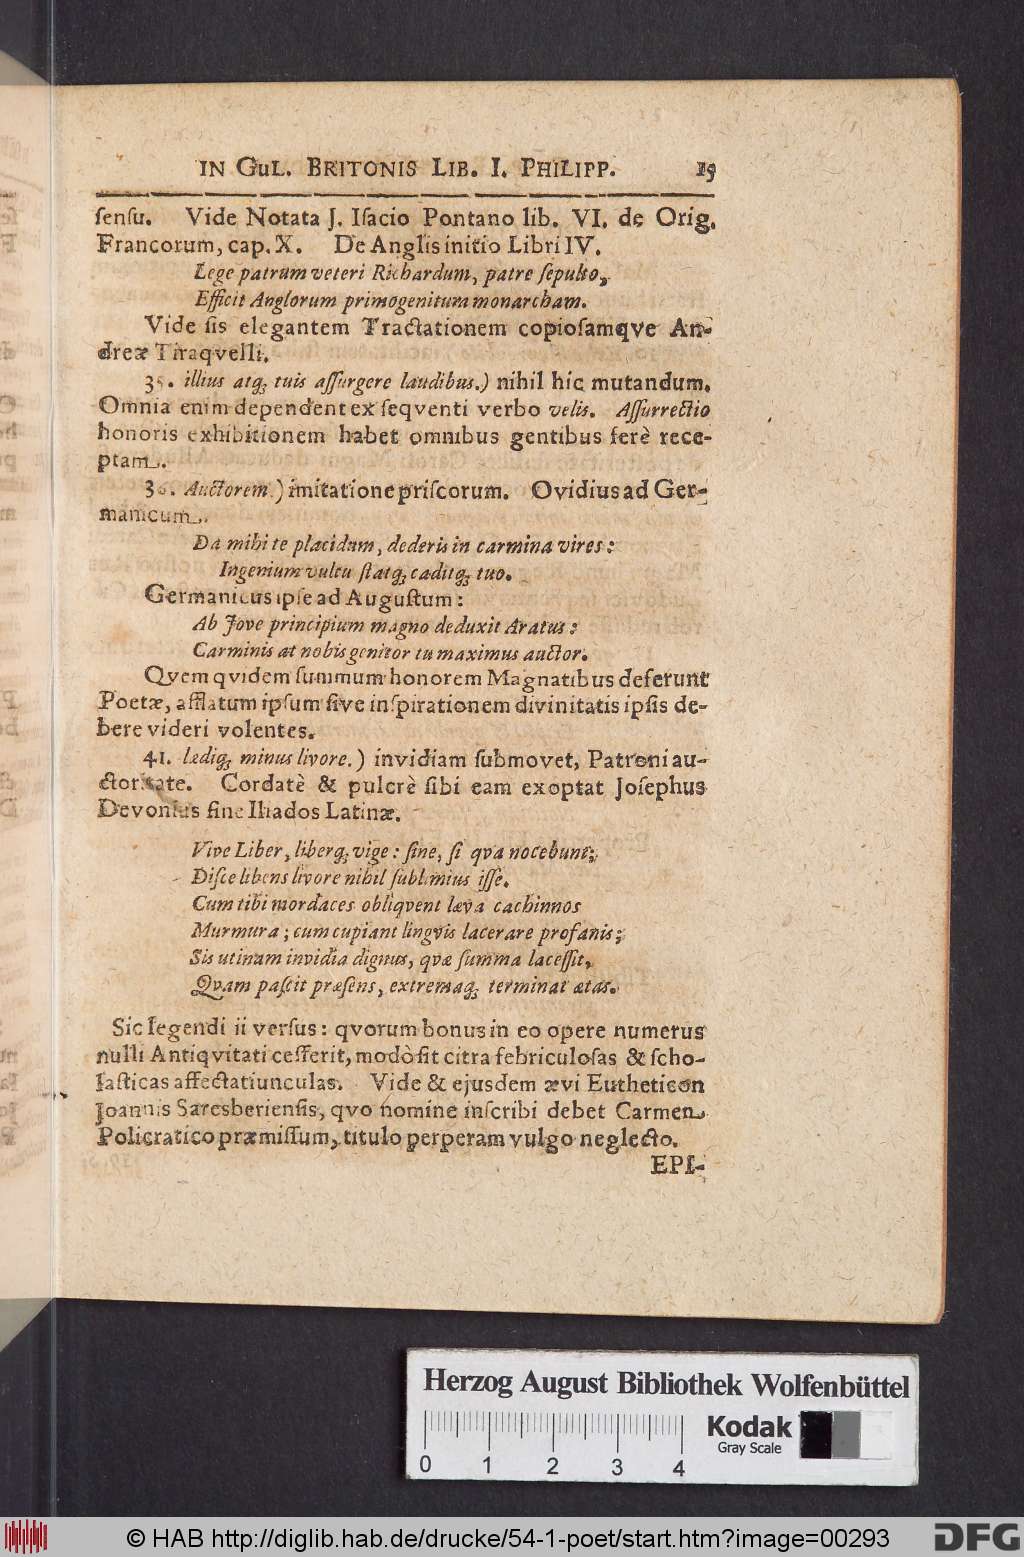 IN GUL. BRITONIS LIB. I. PHILIPP. 19
ſenſu. Vide Notata J. Iſacio Pontano lib. VI. de Orig.
Francorum, cap. X. De Anglis initio Libri IV.
Lege patrum veteri Richardum, patre ſepulto,
Efficit Anglorum primogenitum monarcham.
Vide ſis elegantem Tractationem copioſamqve An-
dreæ Tiraqvelli.
35. illius atq; tuis aſſurgere laudibus.) nihil hic mutandum.
Omnia enim dependent ex ſeqventi verbo velis. Aſſurrectio
honoris exhibitionem habet omnibus gentibus ferè rece-
ptam.
36. Auctorem.) imitatione priſcorum. Ovidius ad Ger-
manicum.
Da mihi te placidum, dederis in carmina vires:
Ingenium vultu ſtatq; caditq; tuo.
Germanicus ipſe ad Auguſtum:
Ab Jove principium magno deduxit Aratus:
Carminis at nobis genitor tu maximus auctor.
Qvem qvidem ſummum honorem Magnatibus deferunt
Poetæ, afflatum ipſum ſive inſpirationem divinitatis ipſis de-
bere videri volentes.
41. lædiq; minus livore.) invidiam ſubmovet, Patroni au-
ctoritate. Cordatè & pulcrè ſibi eam exoptat Joſephus
Devonius fine Iliados Latinæ.
Vive Liber, liberq; vige: ſine, ſi qva nocebunt;
Diſce libens livore nihil ſublimius iſſe.
Cum tibi mordaces obliqvent læva cachinnos
Murmura; cum cupiant lingvis lacerare profanis;
Sis utinam invidia dignus, qvæ ſumma laceſſit,
Qvam paſcit præſens, extremaq; terminat ætas.
Sic legendi ii verſus: qvorum bonus in eo opere numerus
nulli Antiqvitati ceſſerit, modò ſit citra febriculoſas & ſcho-
laſticas affectatiunculas. Vide & ejusdem ævi Eutheticon
Joannis Saresberienſis, qvo nomine inſcribi debet Carmen
Policratico præmiſſum, titulo perperam vulgo neglecto.
EPI-
Herzog August Bibliothek Wolfenbüttel
Kodak
Gray Scale
0 1 2 3 4
© HAB http://diglib.hab.de/drucke/54-1-poet/start.htm?image=00293
DFG